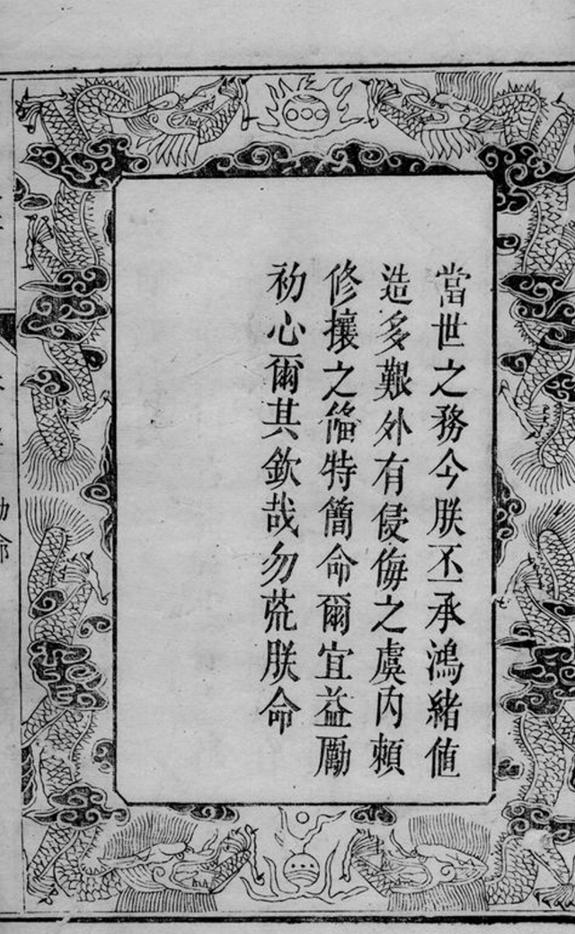 當世之務今朕丕承鴻緒值
造多艱外有侵侮之虞內賴
修攘之俻特簡命爾宜益勵
初心爾其欽哉勿荒朕命